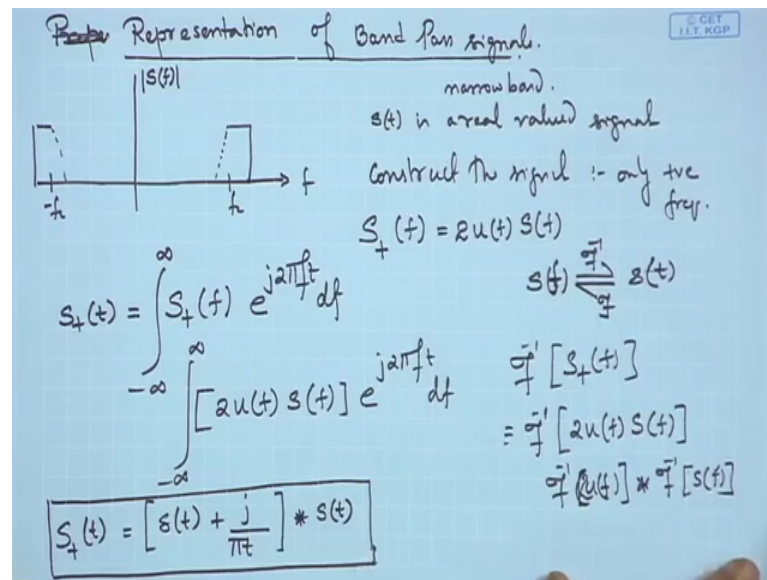 Representation of Band Pass signals.
© CET
I.I.T. KGP
|S(f)|
f
-fc
fc
narrowband.
s(t) is a real valued signal
Construct the signal :- only +ve
freq.
S₊(f) = 2u(f) S(f)
S(f) ⇌ s(t)
F⁻¹
F
S₊(t) = ∫_{-∞}^{∞} S₊(f) e^{j2πft} df
∫_{-∞}^{∞} [2u(f) S(f)] e^{j2πft} df
F⁻¹ [S₊(f)]
= F⁻¹ [2u(f) S(f)]
F⁻¹ [2u(f)] * F⁻¹ [S(f)]
S₊(t) = [δ(t) + j/πt] * s(t)